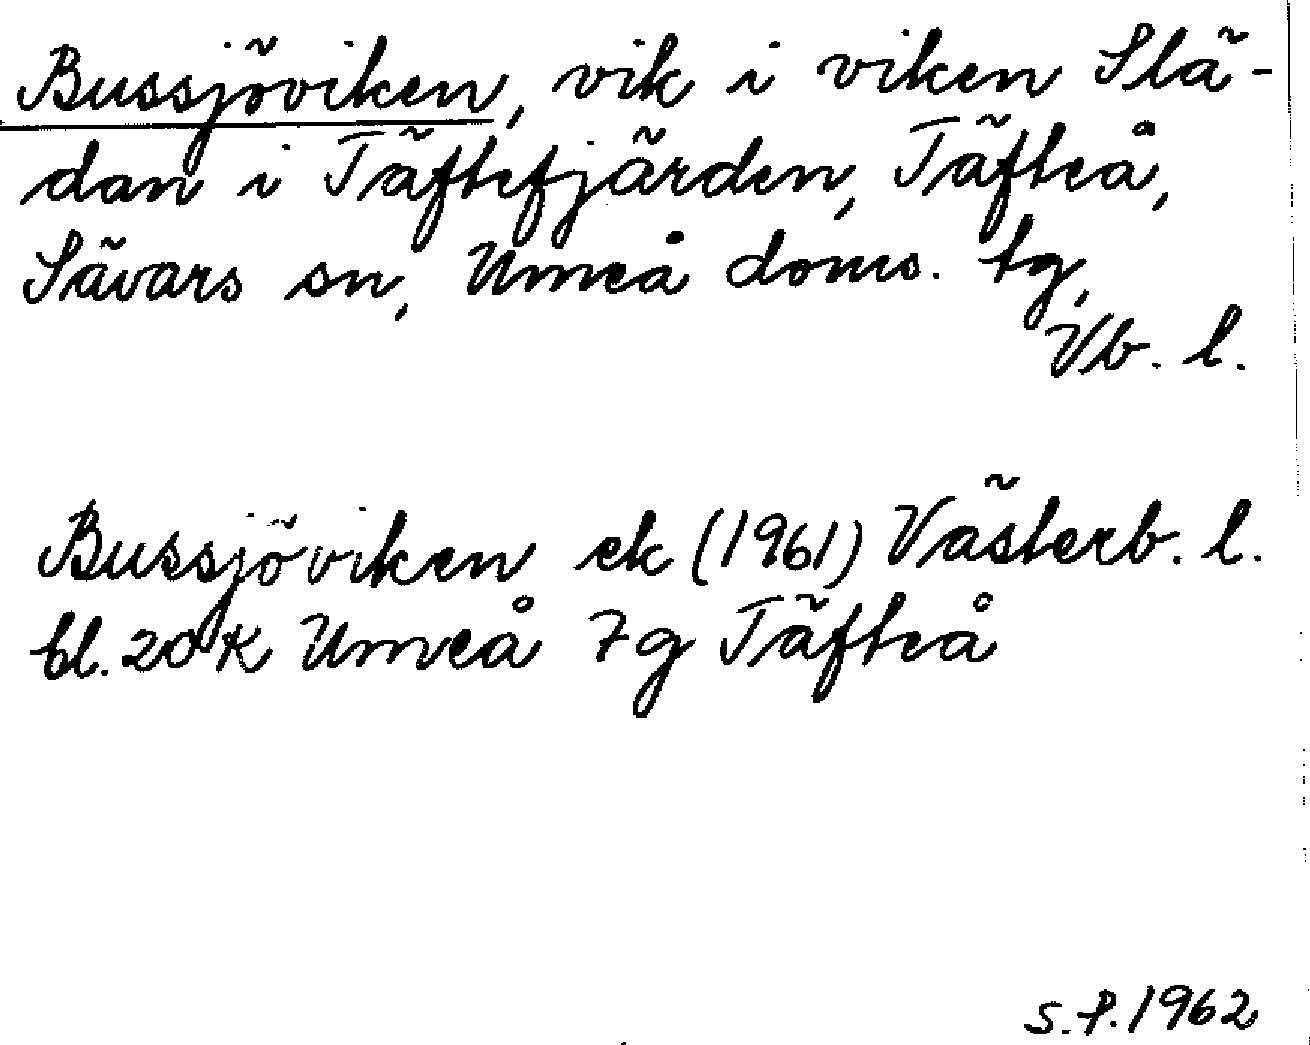 Bussjöviken, vik i viken Slä-
dan i Täftefjärden, Täfteå,
Sävars sn, Umeå doms. tg,
Vb. l.
Bussjöviken ek (1961) Västerb. l.
bl. 20 K Umeå 7g Täfteå
S.P. 1962